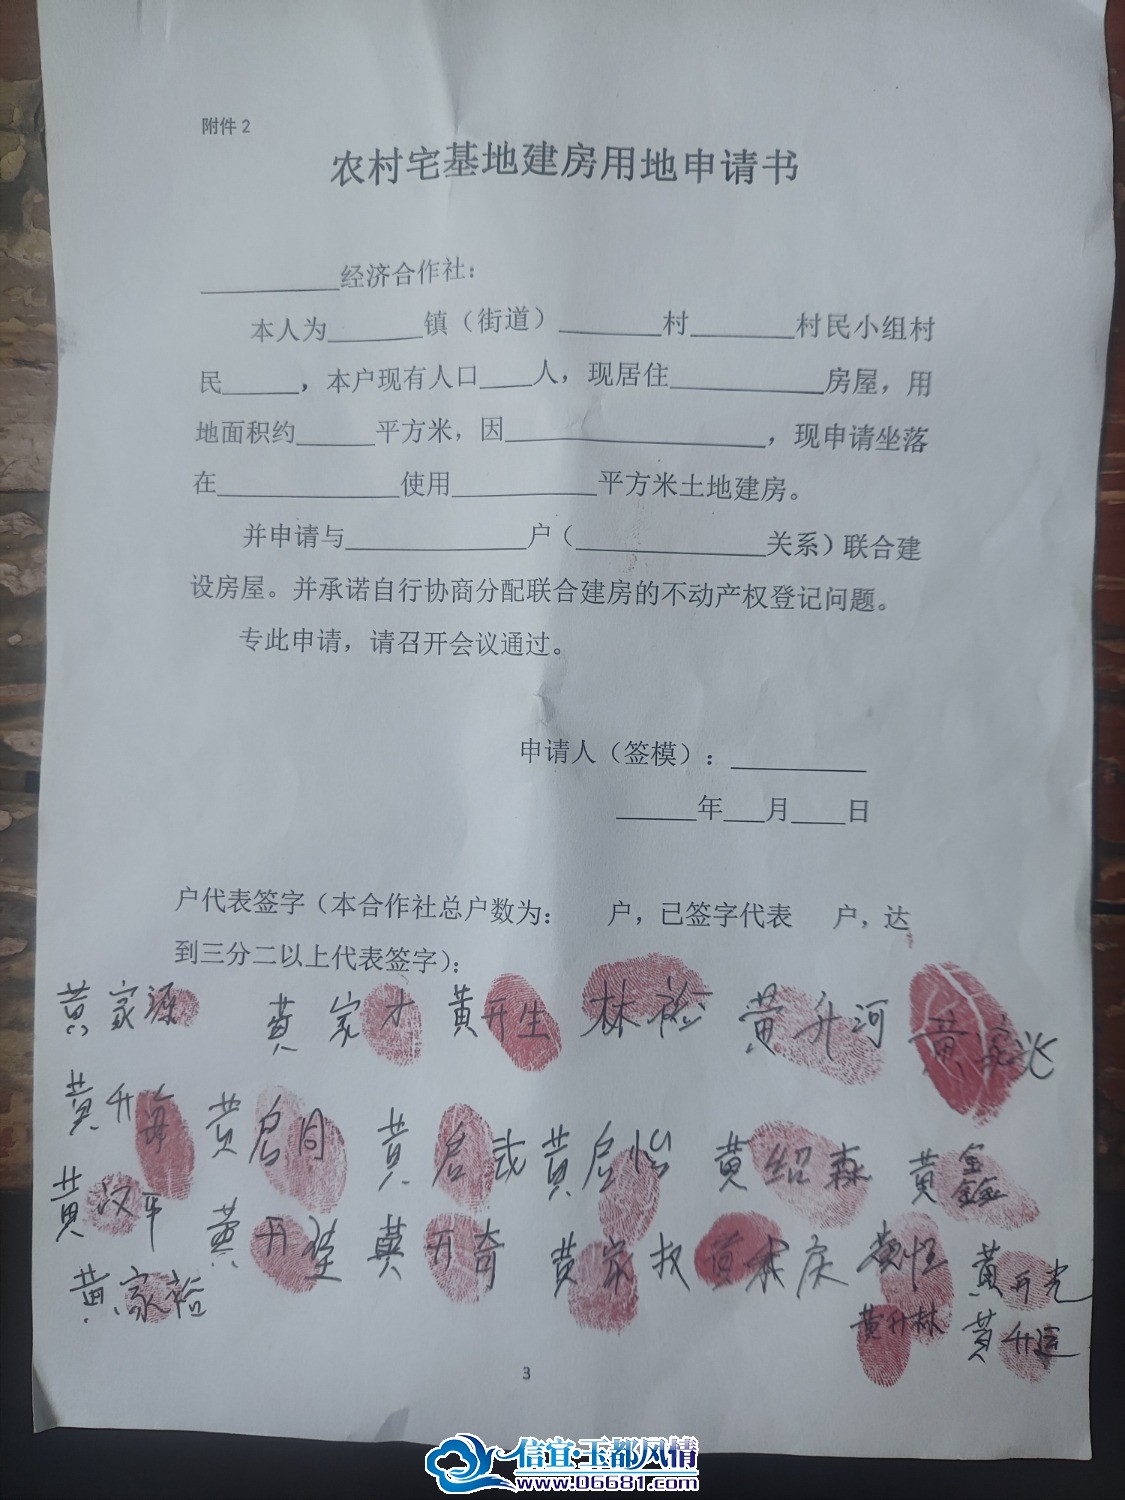 附件 2
农村宅基地建房用地申请书
________经济合作社：
本人为______镇（街道）______村______村民小组村
民_____，本户现有人口___人，现居住_________房屋，用
地面积约_____平方米，因_______________，现申请坐落
在___________使用_________平方米土地建房。
并申请与___________户（___________关系）联合建
设房屋。并承诺自行协商分配联合建房的不动产权登记问题。
专此申请，请召开会议通过。
申请人（签模）：________
_____年___月___日
户代表签字（本合作社总户数为： 户，已签字代表 户，达
到三分二以上代表签字）：
黄家源 黄家才 黄开生 林裕 黄升河 黄
黄升海 黄启同 黄启 黄启怡 黄绍森 黄鑫
黄汉平 黄开 黄开奇 黄家权 黄家庆 黄恒 黄开光
黄家裕 黄升林 黄升运
3
信宜·玉都风情
www.06681.com